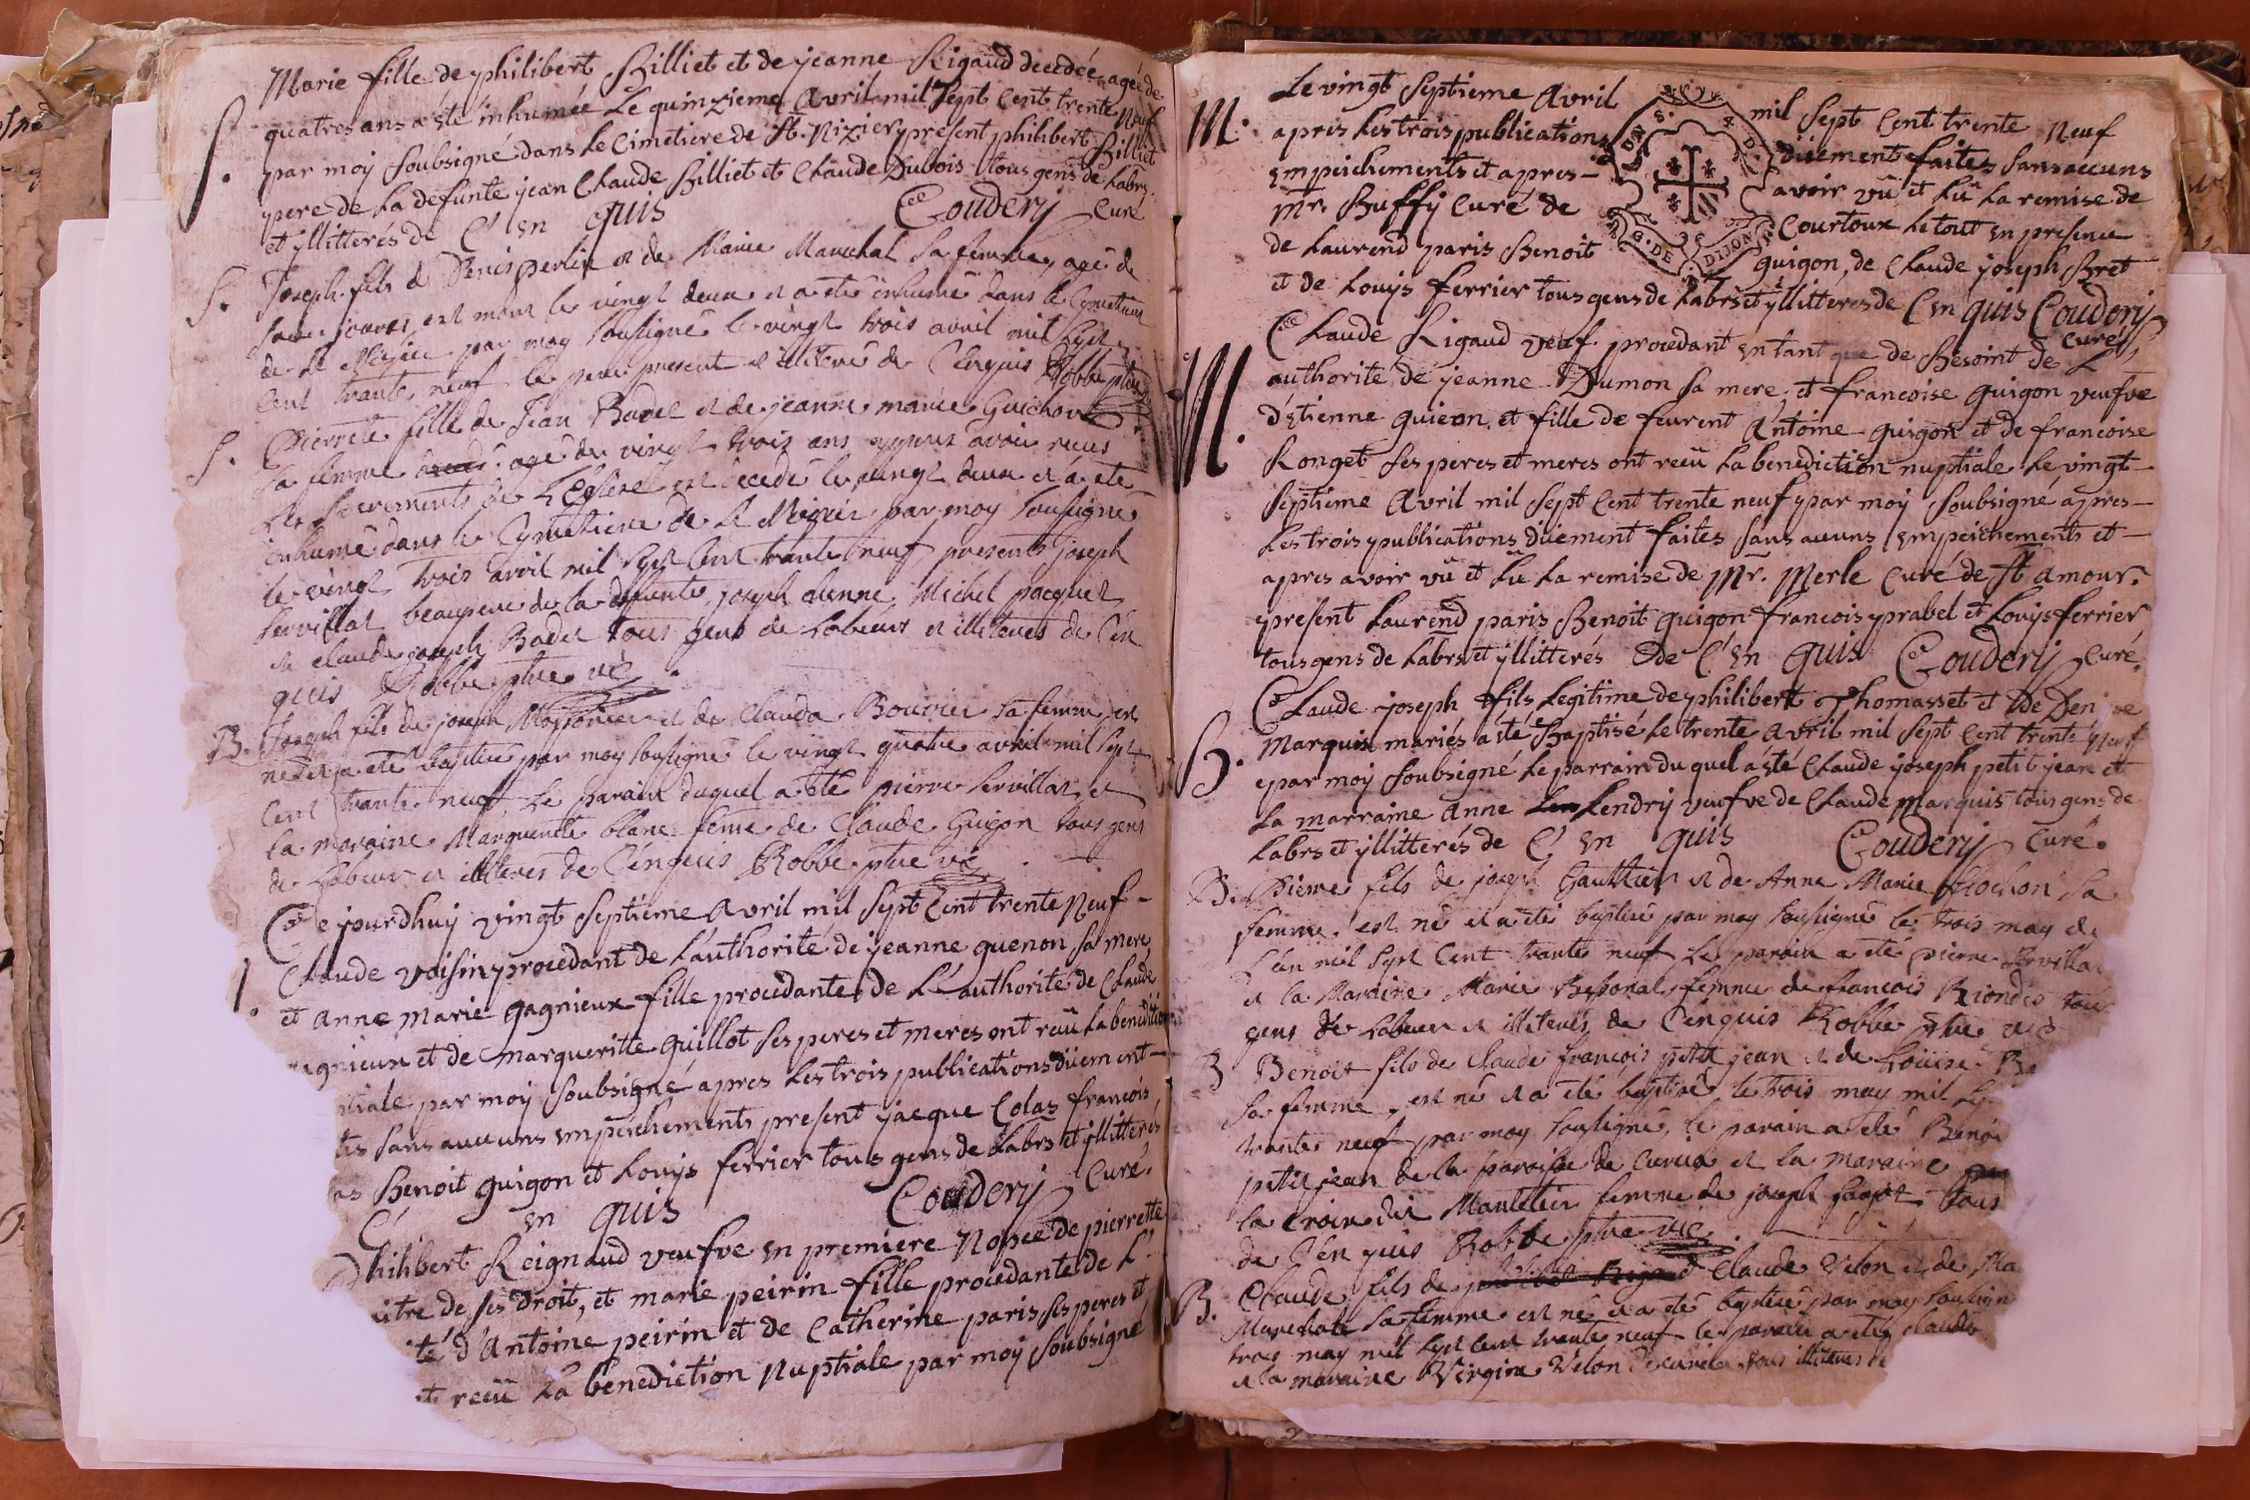 Marie fille de philibert Billiet et de jeanne Rigaud decedée agée de
S. quatres ans a eté inhumée Le quinzieme Avril mil Sept Cent trente Neuf
par moy Soubsigné dans Le Cimetiere de St. Nizier present philibert Billiet
pere de La defunte jean Claude Billiet et Claude Dubois tous gens de Labrs.
et yllitterés de C'en quis Couderij Curé
S. Joseph fils de Denis perin et de Marie Marechal Sa femme, agé de
jours, est mort le vingt deux et a eté inhumé dans le Cymetiere
de St Nizier par moy Sousigné le vingt trois avril mil Sept
Cent trante neuf le pere present et illiteré de C'enquis Robbe ptre
S. Pierrete fille de Jean Badel et de jeanne marie Guichon
Sa femme agé de vingt trois ans appres avoir reçus
Les Sacrements de L'Eglise est decedé le vingt deux et a eté
inhumé dans le Cymetiere de St Nizier par moy Sousigné
le vingt trois avril mil Sept Cent trante neuf, presents joseph
Servillat beaupere de la defunte, joseph Michel pacquet
et claude joseph Badel tous gens de Labeurs et illiteres de C'en
quis Robbe ptre vic
B. Joseph fils de joseph et de Clauda Bouvier Sa femme est
né et a eté baptisé par moy Sousigné le vingt quatre avril mil Sept
Cent trante neuf Le parain duquel a eté pierre Servillat et
La maraine Marguerite blanc feme de Claude Guigon tous gens
de Labeur et illiteres de C'enquis Robbe ptre vic
Ce jourdhuij vingt Septieme Avril mil Sept Cent trente Neuf -
Claude Voisin procedant de L'authorité de jeanne guenon Sa mere
et anne marie gagnieux fille procedante de L'authorité de Claude
gnieux et de margueritte guillot Ses peres et meres ont reçû La benediction
tiale par moy Soubsigné apres Les trois publications düement -
tes Sans aucuns empeichements present jacque Colas francois
as Benoit guigon et Louijs ferrier tous gens de Labrs et yllitterés
C' en quis Couderij Curé.
philibert Reignaud veufve en premiere Nopce de pierrette
itre de Ses Droit, et marie peirin fille procedante de L'
ité d'Antoine peirin et de Catherine paris Ses peres et
t reçû La benediction Nuptiale par moy Soubsigné
Le vingt Septieme Avril mil Sept Cent trente Neuf
M. apres Les trois publications düement faites Sans aucuns
empeichements et apres - avoir vû et Lû La remise de
Mr. Buffij Curé de Courtoux Le tout en presence
de Laurend paris Benoit guigon, de Claude joseph Bret
et de Louijs ferrier tous gens de Labrs et yllitteres de C'en quis Couderij
Curé
Claude Rigaud veuf procedant en tant que de Besoint de L'
M. authorité de jeanne Dumon Sa mere, et francoise guigon veufve
d'Etienne guieon, et fille de feurent Antoine guigon et de francoise
Ronget Ses peres et meres ont reçû La benediction nuptiale Le vingt
Septieme Avril mil Sept Cent trente neuf par moy Soubsigné apres -
Les trois publications düement faites Sans aucuns empeichements et -
apres avoir vû et Lû La remise de Mr. Merle Curé de St amour.
present Laurend paris Benoit guigon francois prabel et Louijs ferrier
tous gens de Labrs et yllitterés de C'en quis Couderij Curé.
Claude joseph fils Legitime de philibert Thomasset et De Den
marquis mariés a eté Baptisé Le trente Avril mil Sept Cent trente Neuf
B. par moy Soubsigné Le parrain du quel a eté Claude joseph petit jean et
La marraine Anne Lendrij veufve de Claude marquis tous gens de
Labrs et yllitterés de C' en quis Couderij Curé.
B. Pierre fils de joseph Gaultier et de Anne Marie Sa
femme est né et a eté baptisé par moy Sousigné le trois may de
L'an mil Sept Cent trante neuf Le parain a eté pierre Servillat
et la Maraine Marie femme de francois Riondet tous
gens de Labeur et illiteres de C'enquis Robbe ptre vic
B Benoit fils de Claude françois petit jean et de Loüise
Sa femme, est né et a eté baptisé le trois may mil
trante neuf par moy Sousigné, le parain a eté Benoi
petit jean de la paroisse de et La maraine
la Croix dit Mantelier femme de joseph tous
de C'en quis Robbe ptre vic
B. Claude fils de Claude Velon et de Ma
Marechale Sa femme est né et a eté baptisé par moy Sousign
trois may mil Sept Cent trante neuf le parain a eté Claude
et La maraine Virgine Velon tous illiteres